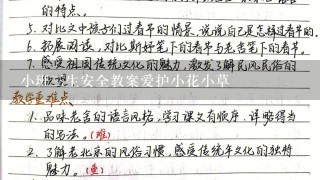 的特点。
5. 对比文中孩子们过春节的情景,说说自己是怎样过春节的。
6. 拓展阅读,对比斯妤笔下的春节与老舍笔下的春节。
7. 感受祖国传统文化的魅力,激发了解民风民俗的
欲望。
小班卫生安全教案爱护小花小草
教学重难点
1. 品味老舍的语言风格,学习课文有顺序、详略得当
的写法。(难)
2. 了解老北京的风俗习惯,感受传统年文化的独特
魅力。(重)